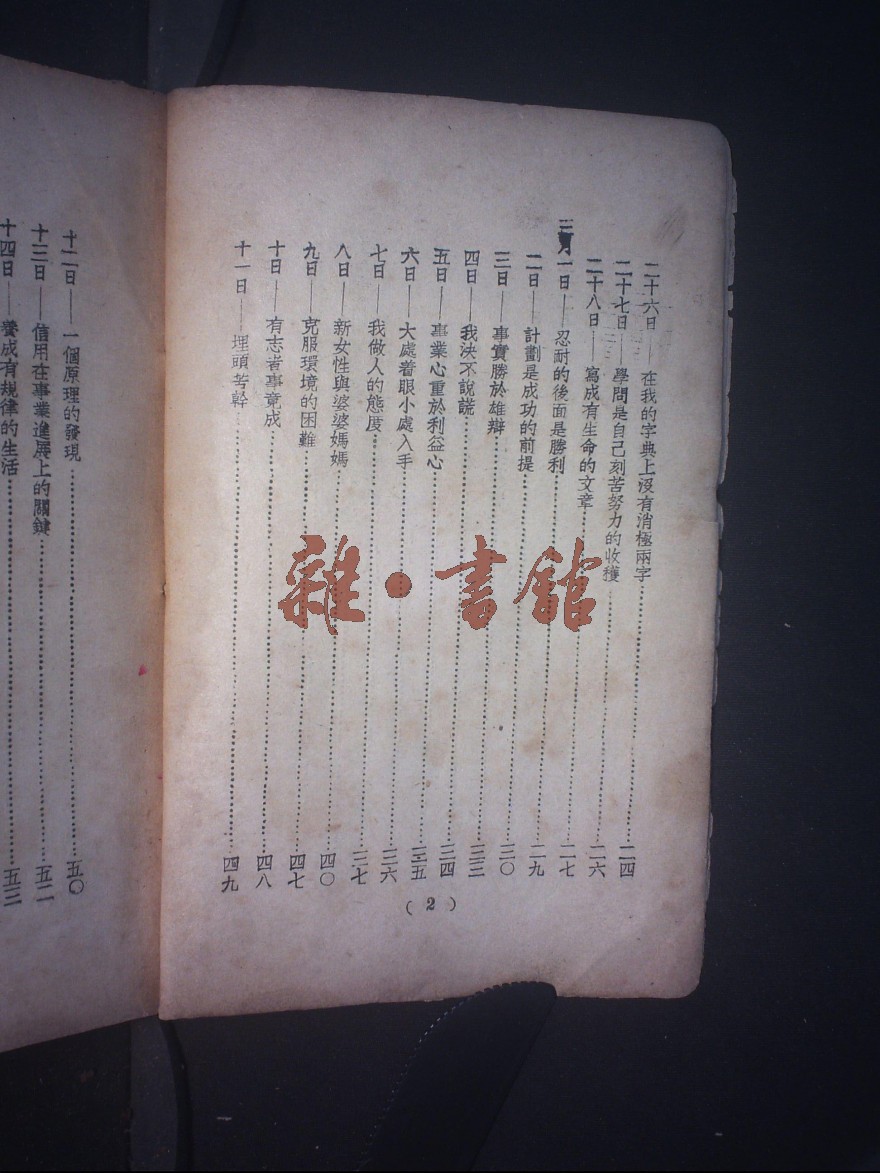 二十六日——在我的字典上沒有消極兩字……二四
二十七日——學問是自己刻苦努力的收穫
二十八日——寫成有生命的文章……二六
三月一日——忍耐的後面是勝利……二七
二日——計劃是成功的前提……二九
三日——事實勝於雄辯……三〇
四日——我決不說謊……三三
五日——事業心重於利益心……三四
六日——大處着眼小處入手……三五
七日——我做人的態度……三六
八日——新女性與婆婆媽媽……三七
九日——克服環境的困難……四〇
十日——有志者事竟成……四七
十一日——埋頭苦幹……四八
四九
(2)
十二日——一個原理的發現……五〇
十三日——信用在事業進展上的關鍵……五二
十四日——養成有規律的生活……五三
雜·書館